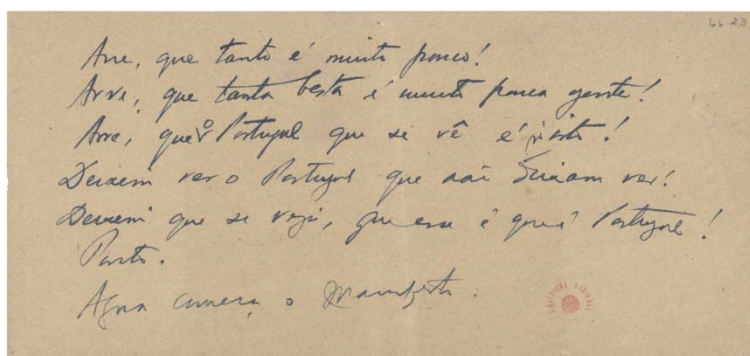 66-23
Arre, que tanto é muito pouco!
Arre, que tanta besta é muito pouca gente!
Arre, que o Portugal que se vê é só isto!
Deixem ver o Portugal que não deixam ver!
Deixem que se veja, que esse é que é Portugal!
Ponto.
Agora começa o Manifesto.
BIBLIOTECA NACIONAL